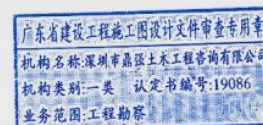 广东省建设工程施工图设计文件审查专用章
机构名称:深圳市鼎弦土木工程咨询有限公
机构类别:一类 认定书编号:19086
业务范围:工程勘察